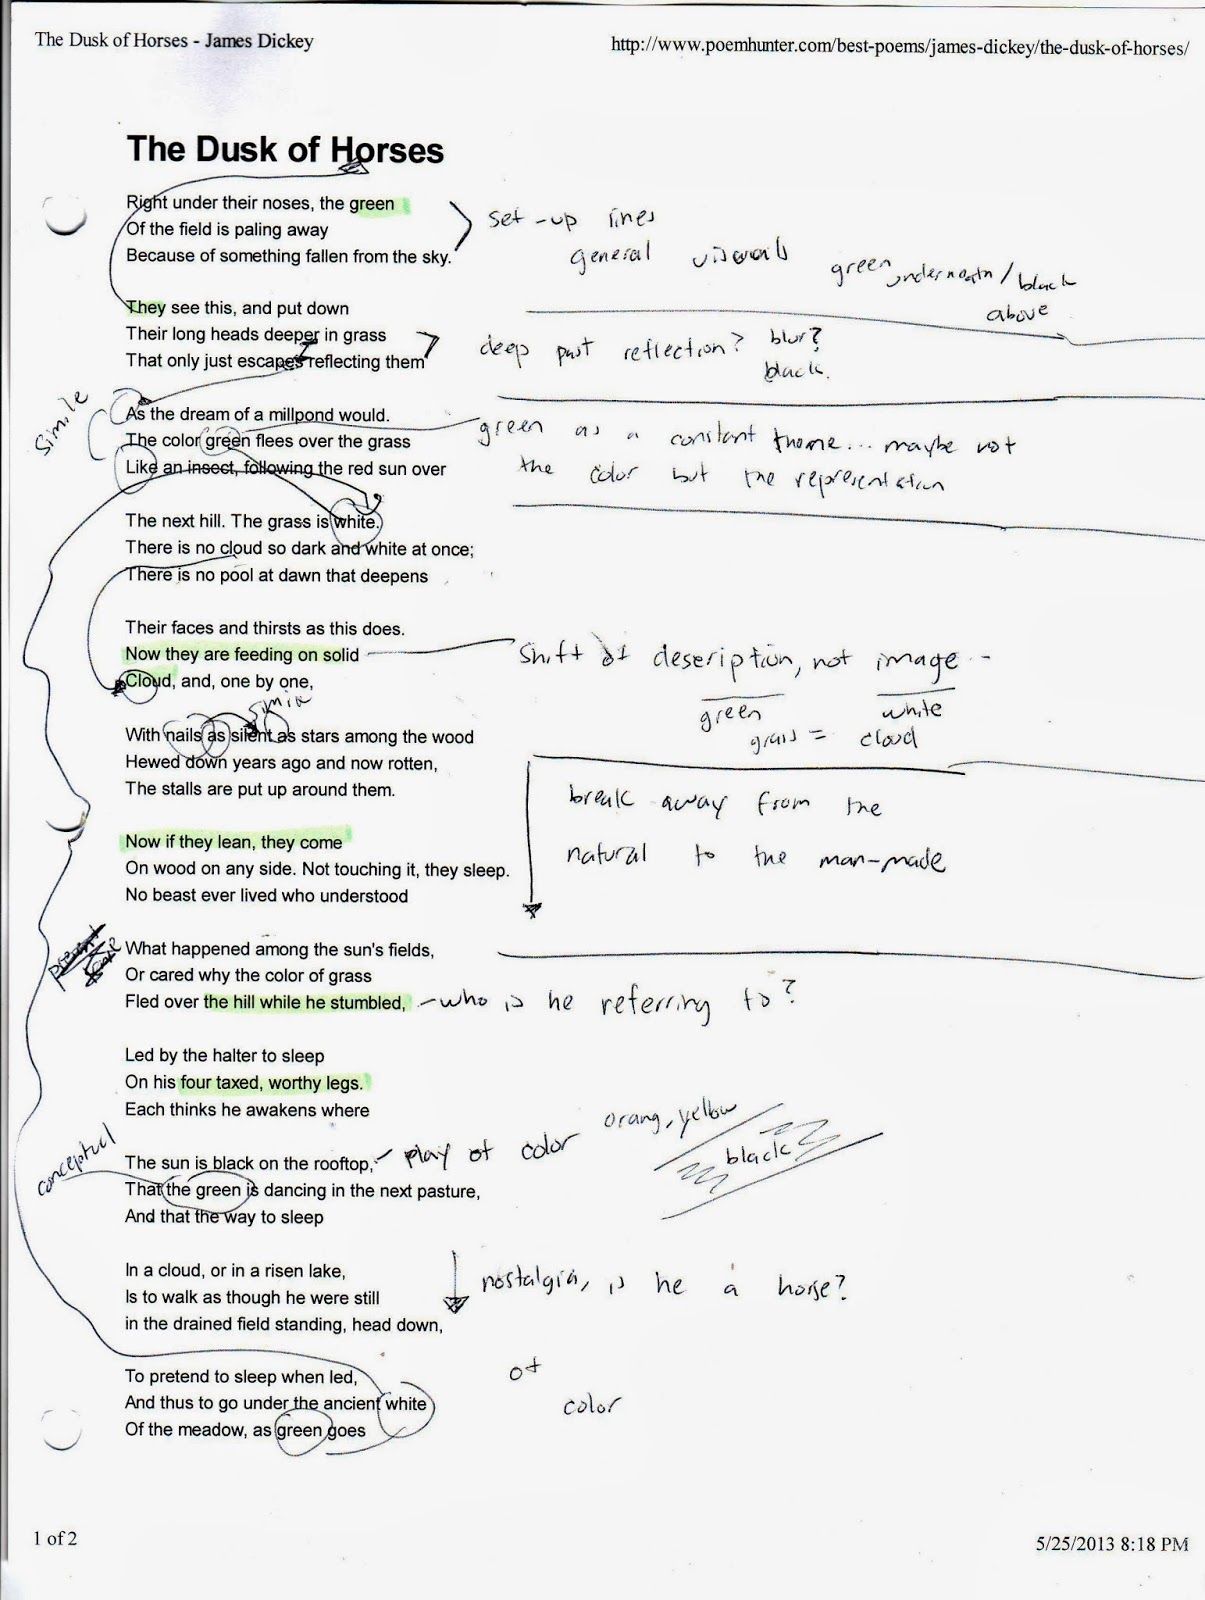 The Dusk of Horses - James Dickey
http://www.poemhunter.com/best-poems/james-dickey/the-dusk-of-horses/
The Dusk of Horses
Right under their noses, the green
Of the field is paling away
Because of something fallen from the sky.
set-up lines
general visuals
green underneath / black
above
They see this, and put down
Their long heads deeper in grass
That only just escapes reflecting them
deep past reflection? blur?
black.
Simile
As the dream of a millpond would.
The color green flees over the grass
Like an insect, following the red sun over
green as a constant theme... maybe not
the color but the representation
The next hill. The grass is white.
There is no cloud so dark and white at once;
There is no pool at dawn that deepens
Their faces and thirsts as this does.
Now they are feeding on solid
Cloud, and, one by one,
shift of description, not image --
green white
grass = cloud
simile
With nails as silent as stars among the wood
Hewed down years ago and now rotten,
The stalls are put up around them.
break away from the
natural to the man-made
Now if they lean, they come
On wood on any side. Not touching it, they sleep.
No beast ever lived who understood
What happened among the sun's fields,
Or cared why the color of grass
Fled over the hill while he stumbled,
- who is he referring to?
Led by the halter to sleep
On his four taxed, worthy legs.
Each thinks he awakens where
conceptual
The sun is black on the rooftop,
That the green is dancing in the next pasture,
And that the way to sleep
play of color
orang, yellow
black
In a cloud, or in a risen lake,
Is to walk as though he were still
in the drained field standing, head down,
nostalgia, is he a horse?
To pretend to sleep when led,
And thus to go under the ancient white
Of the meadow, as green goes
of
color
1 of 2
5/25/2013 8:18 PM